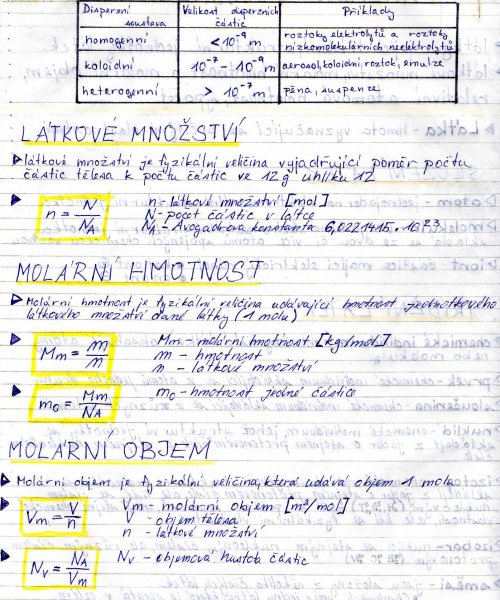 Disperzní soustava | Velikost disperzních částic | Příklady
homogenní | < 10⁻⁹ m | roztoky elektrolytů a roztoky nízkomolekulárních neelektrolytů
koloidní | 10⁻⁷ - 10⁻⁹ m | aerosol, koloidní roztok, emulze
heterogenní | > 10⁻⁷ m | pěna, suspenze
LÁTKOVÉ MNOŽSTVÍ
látkové množství je fyzikální veličina vyjadřující poměr počtu
částic tělesa k počtu částic ve 12g uhlíku 12
n = N/NA
n - látkové množství [mol]
N - počet částic v látce
NA - Avogadrova konstanta 6,0221415 · 10²³
MOLÁRNÍ HMOTNOST
Molární hmotnost je fyzikální veličina udávající hmotnost jednotkového
látkového množství dané látky (1 molu)
Mm = m/n
Mm - molární hmotnost [kg/mol]
m - hmotnost
n - látkové množství
m₀ = Mm/NA
m₀ - hmotnost jedné částice
MOLÁRNÍ OBJEM
Molární objem je fyzikální veličina, která udává objem 1 molu
Vm = V/n
Vm - molární objem [m³/mol]
V - objem tělesa
n - látkové množství
Nv = NA/Vm
Nv - objemová hustota částic